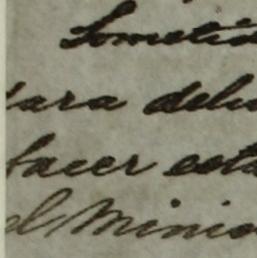 Sometid
tara deliv
facer esta
el Minio